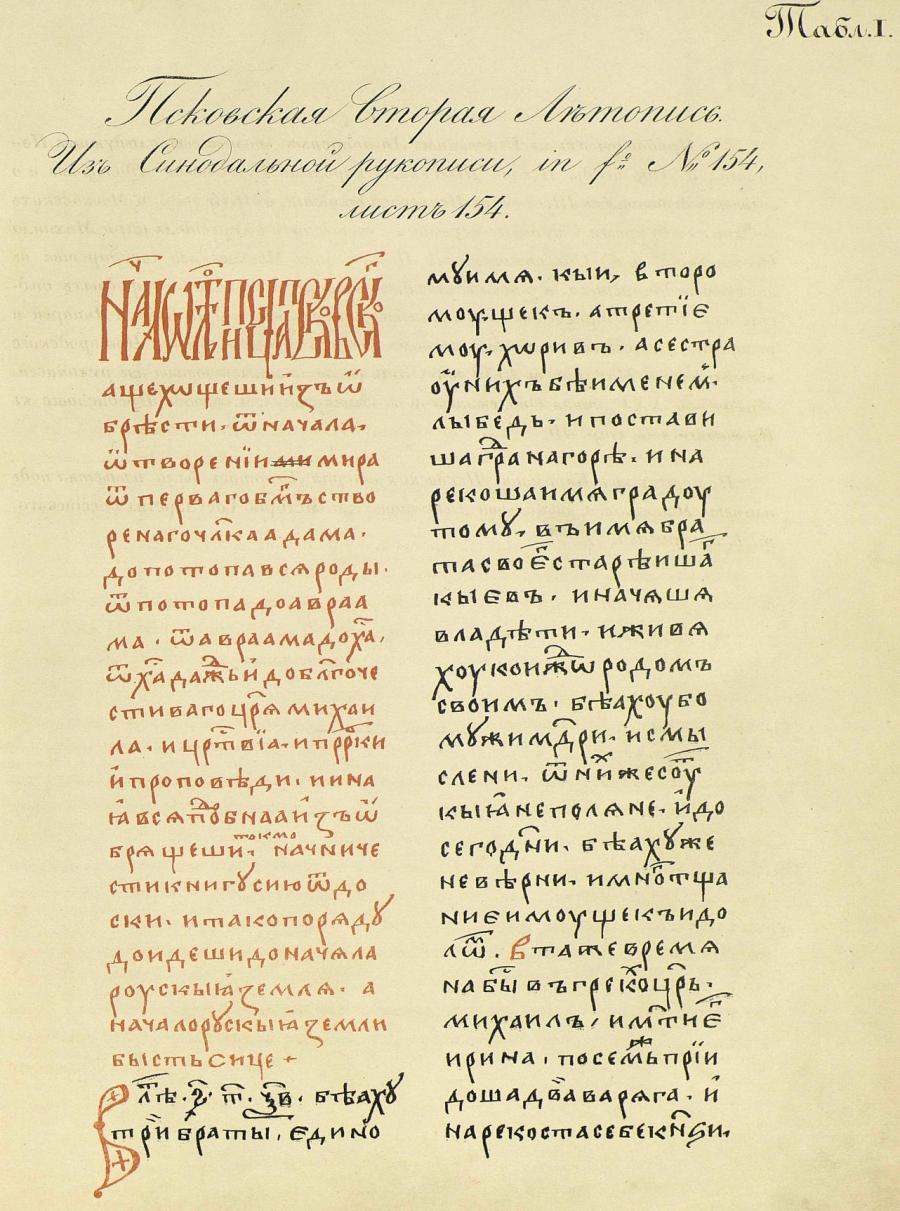 Табл. I.
Псковская Вторая Лѣтопись.
Изъ Синодальной рукописи, in fº Nº 154,
листъ 154.
аще хощеши и҆зъѡ
брѣсти. ѿ начала.
ѿ творенїи мира
ѿ перваго бг҃мъ ство
ренаго чл҃ка адама.
до потопа вся роды.
ѿ потопа до авраа
ма. ѿ авраама до х҃а,
ѿ х҃а даж и҆ до бл҃гоче
стиваго цр҃я михаи
ла. и цр҃твїа. и прр҃ки
и҆ проповѣди. и ина
ꙗ вся подобнаа и҆зъѡ
брящеши. токмо начн иче
сти книгу сию ѿ до
ски. и тако поряду
доидеши до начяла
роускыꙗ земля. а
начало рускыꙗ земли
бысть сице +
В лѣ. ҂ѕ. т҃. ѯв. бѣаху
три браты, єдино
моу имя. кыи, второ
моу. щекъ. а третїє
моу. хѡривъ. а сестра
оу них бѣ именем.
лыбедь. и постави
ша гра на горѣ. и на
рекоша имя градоу
тому. въ имя бра
та своєг старѣишаг
кыєвъ. и начяшя
владѣти. и живя
хоу кои ж ѡ родомъ
своимъ. бѣахоу бо
мужи мдр҃и. и смы
слени. ѿ них же соут
кыꙗне поляне. и҆ до
сегодн҃и. бѣаху же
невѣрни. и многтща
ниє имоуще къ идо
лѡм. в та же время
на бы въ грекох цр҃ь.
михаилъ, и мт҃и єг
ирина. по сем ж прїи
доша два варяга. и҆
нарекоста себе кн҃ѕи.